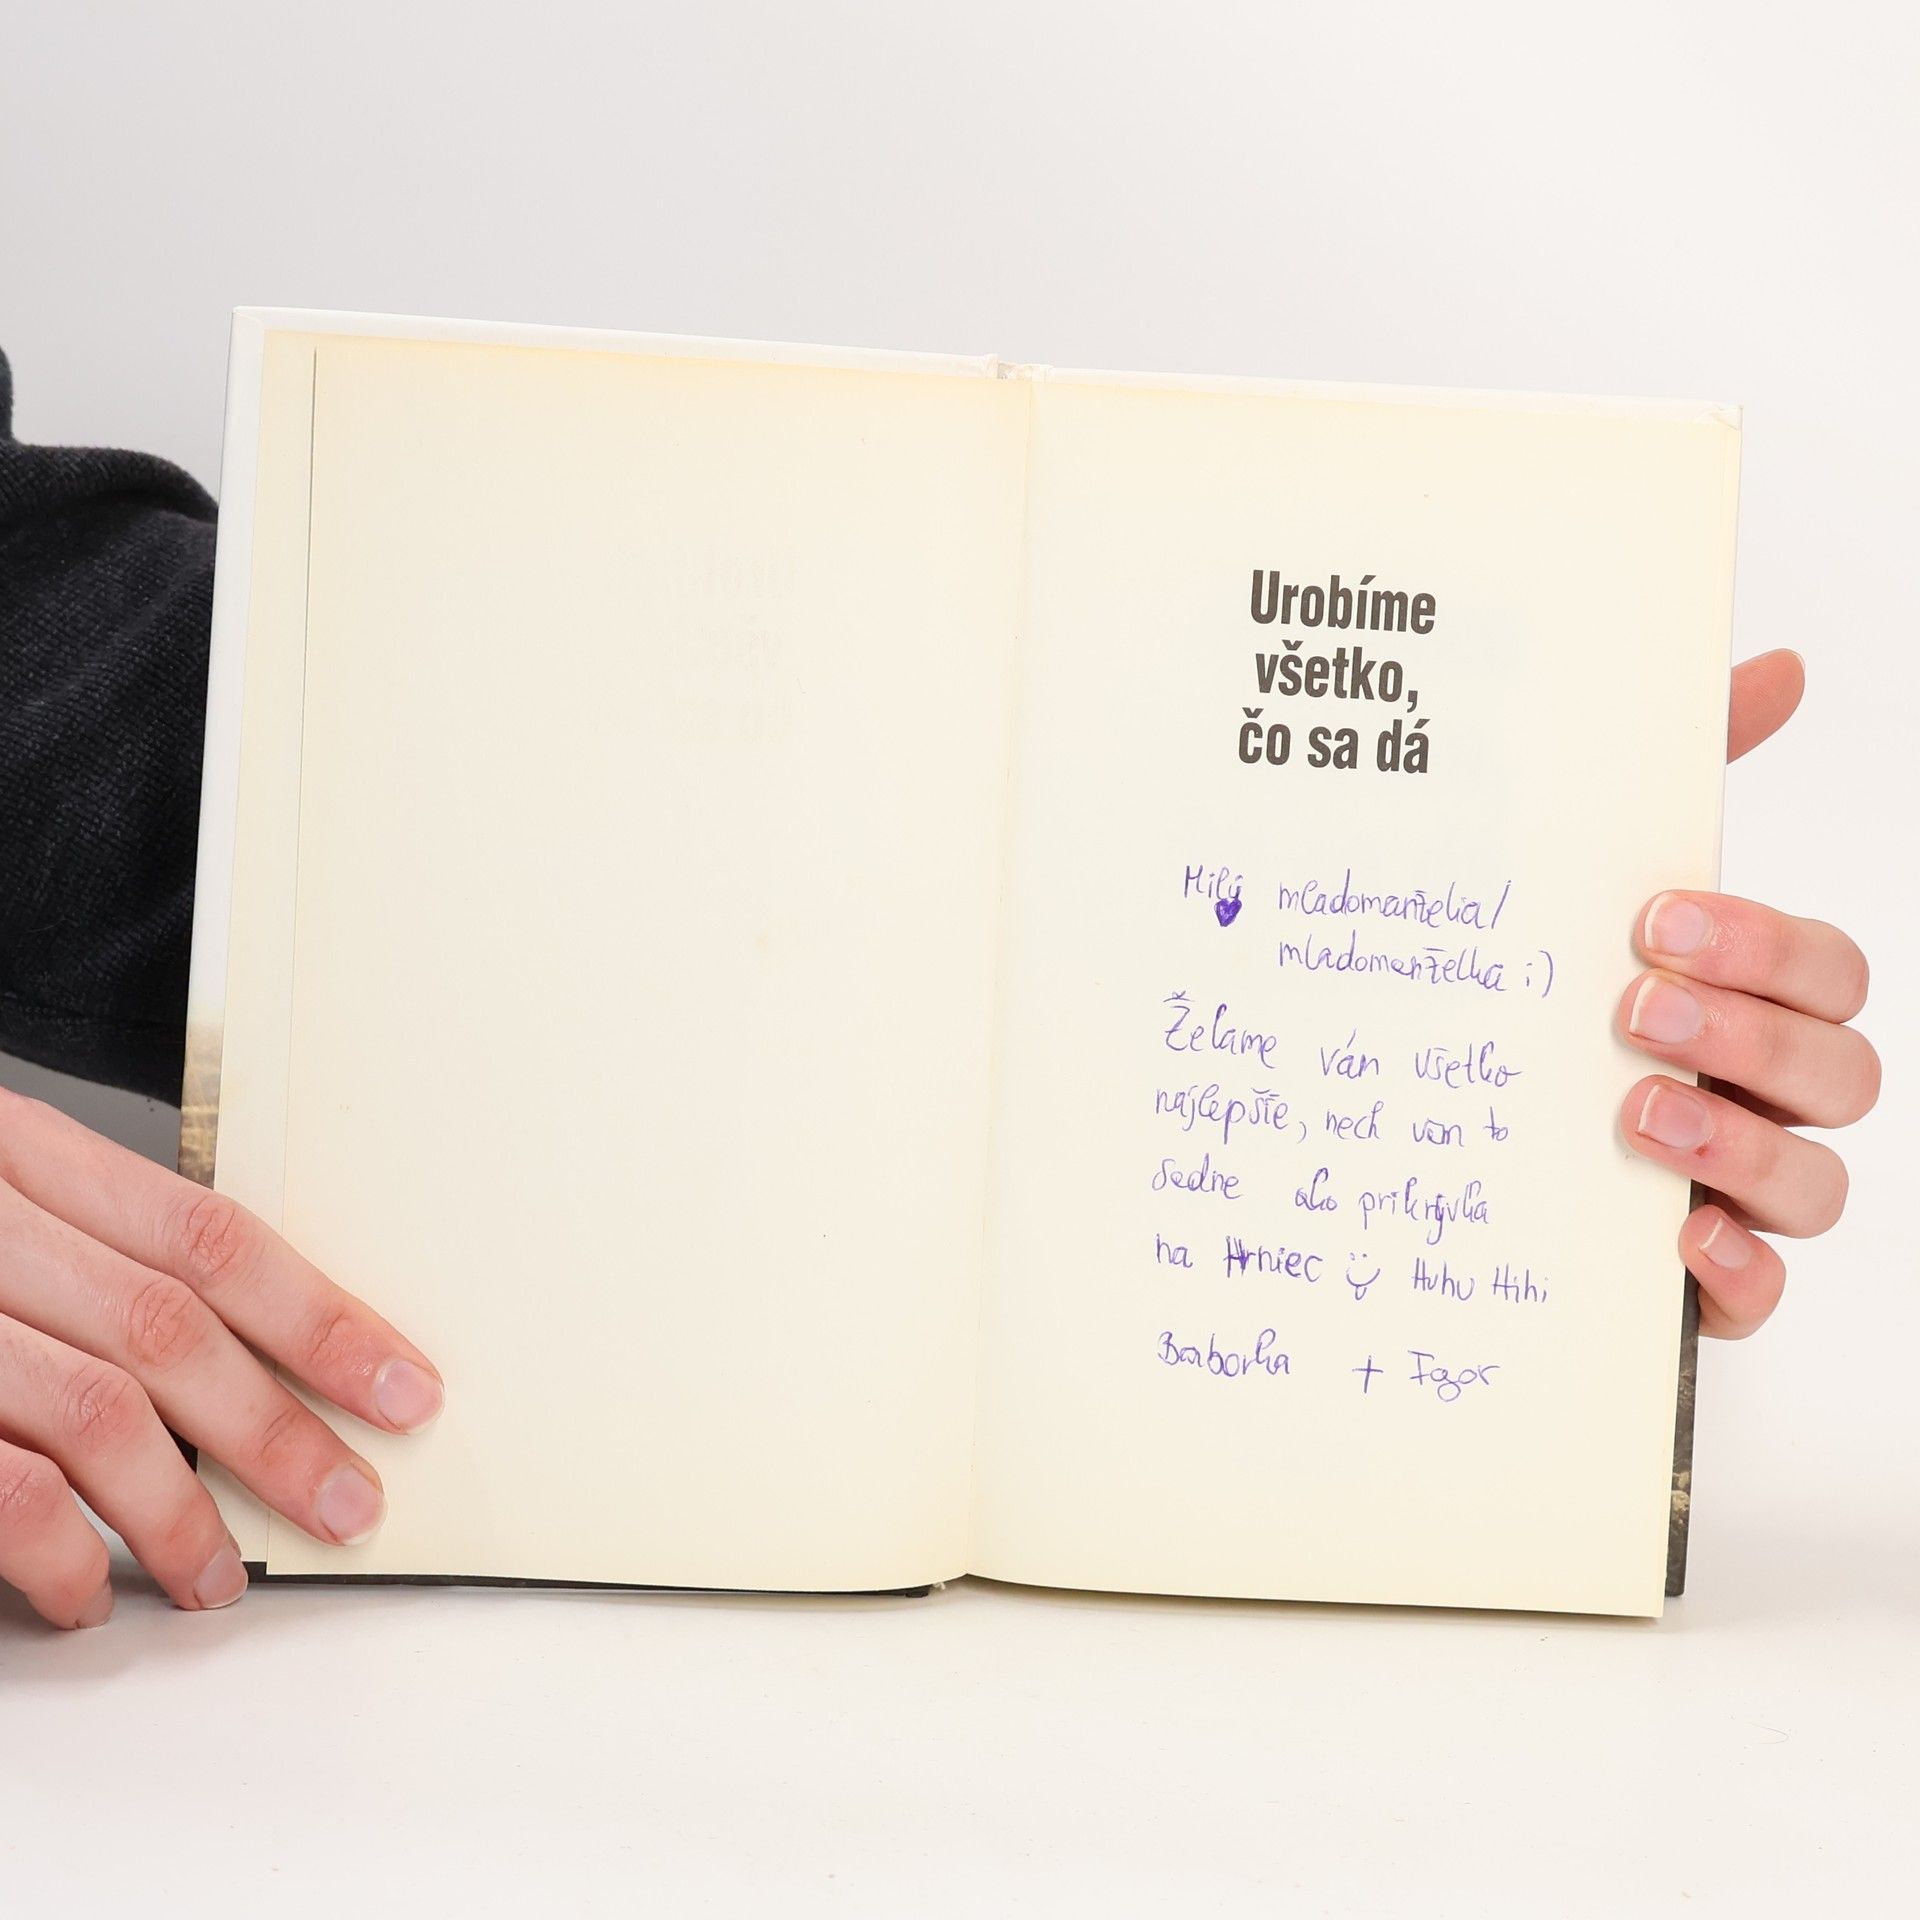 Urobíme
všetko,
čo sa dá
Milý mladomanželia/
mladomanželka ;)
Želáme vám všetko
najlepšie, nech vám to
sadne ako prikrývka
na Hrniec Huhu Hihi
Barborka + Igor